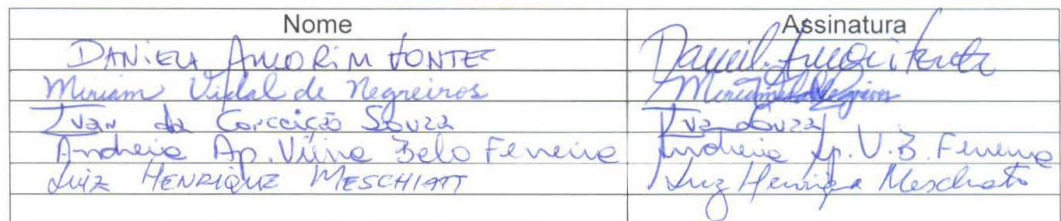 Nome Assinatura
DANIELA AMORIM FONTES
Miriam Vidal de Negreiros
Ivan da Conceição Souza Ivan Souza
Andreia Ap. Vieira Belo Ferreira Andreia Ap. V. B. Ferreira
LUIZ HENRIQUE MESCHIATTI Luiz Henrique Meschiatti